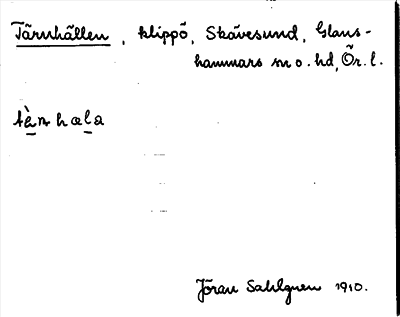 Tärnhällen, klippö, Skävesund, Glans-
hammars sn o. hd, Ör. l.
tä̀rnhæla
Jöran Sahlgren 1910.